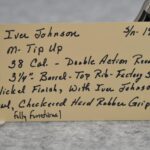 Iver Johnson
M- Tip Up
38 Cal. - Double Action
3 1/4" Barrel - Top Rib - Factory
Nickel Finish, With Iver Johnson
Checkered Hard Rubber Grip
Fully Functional